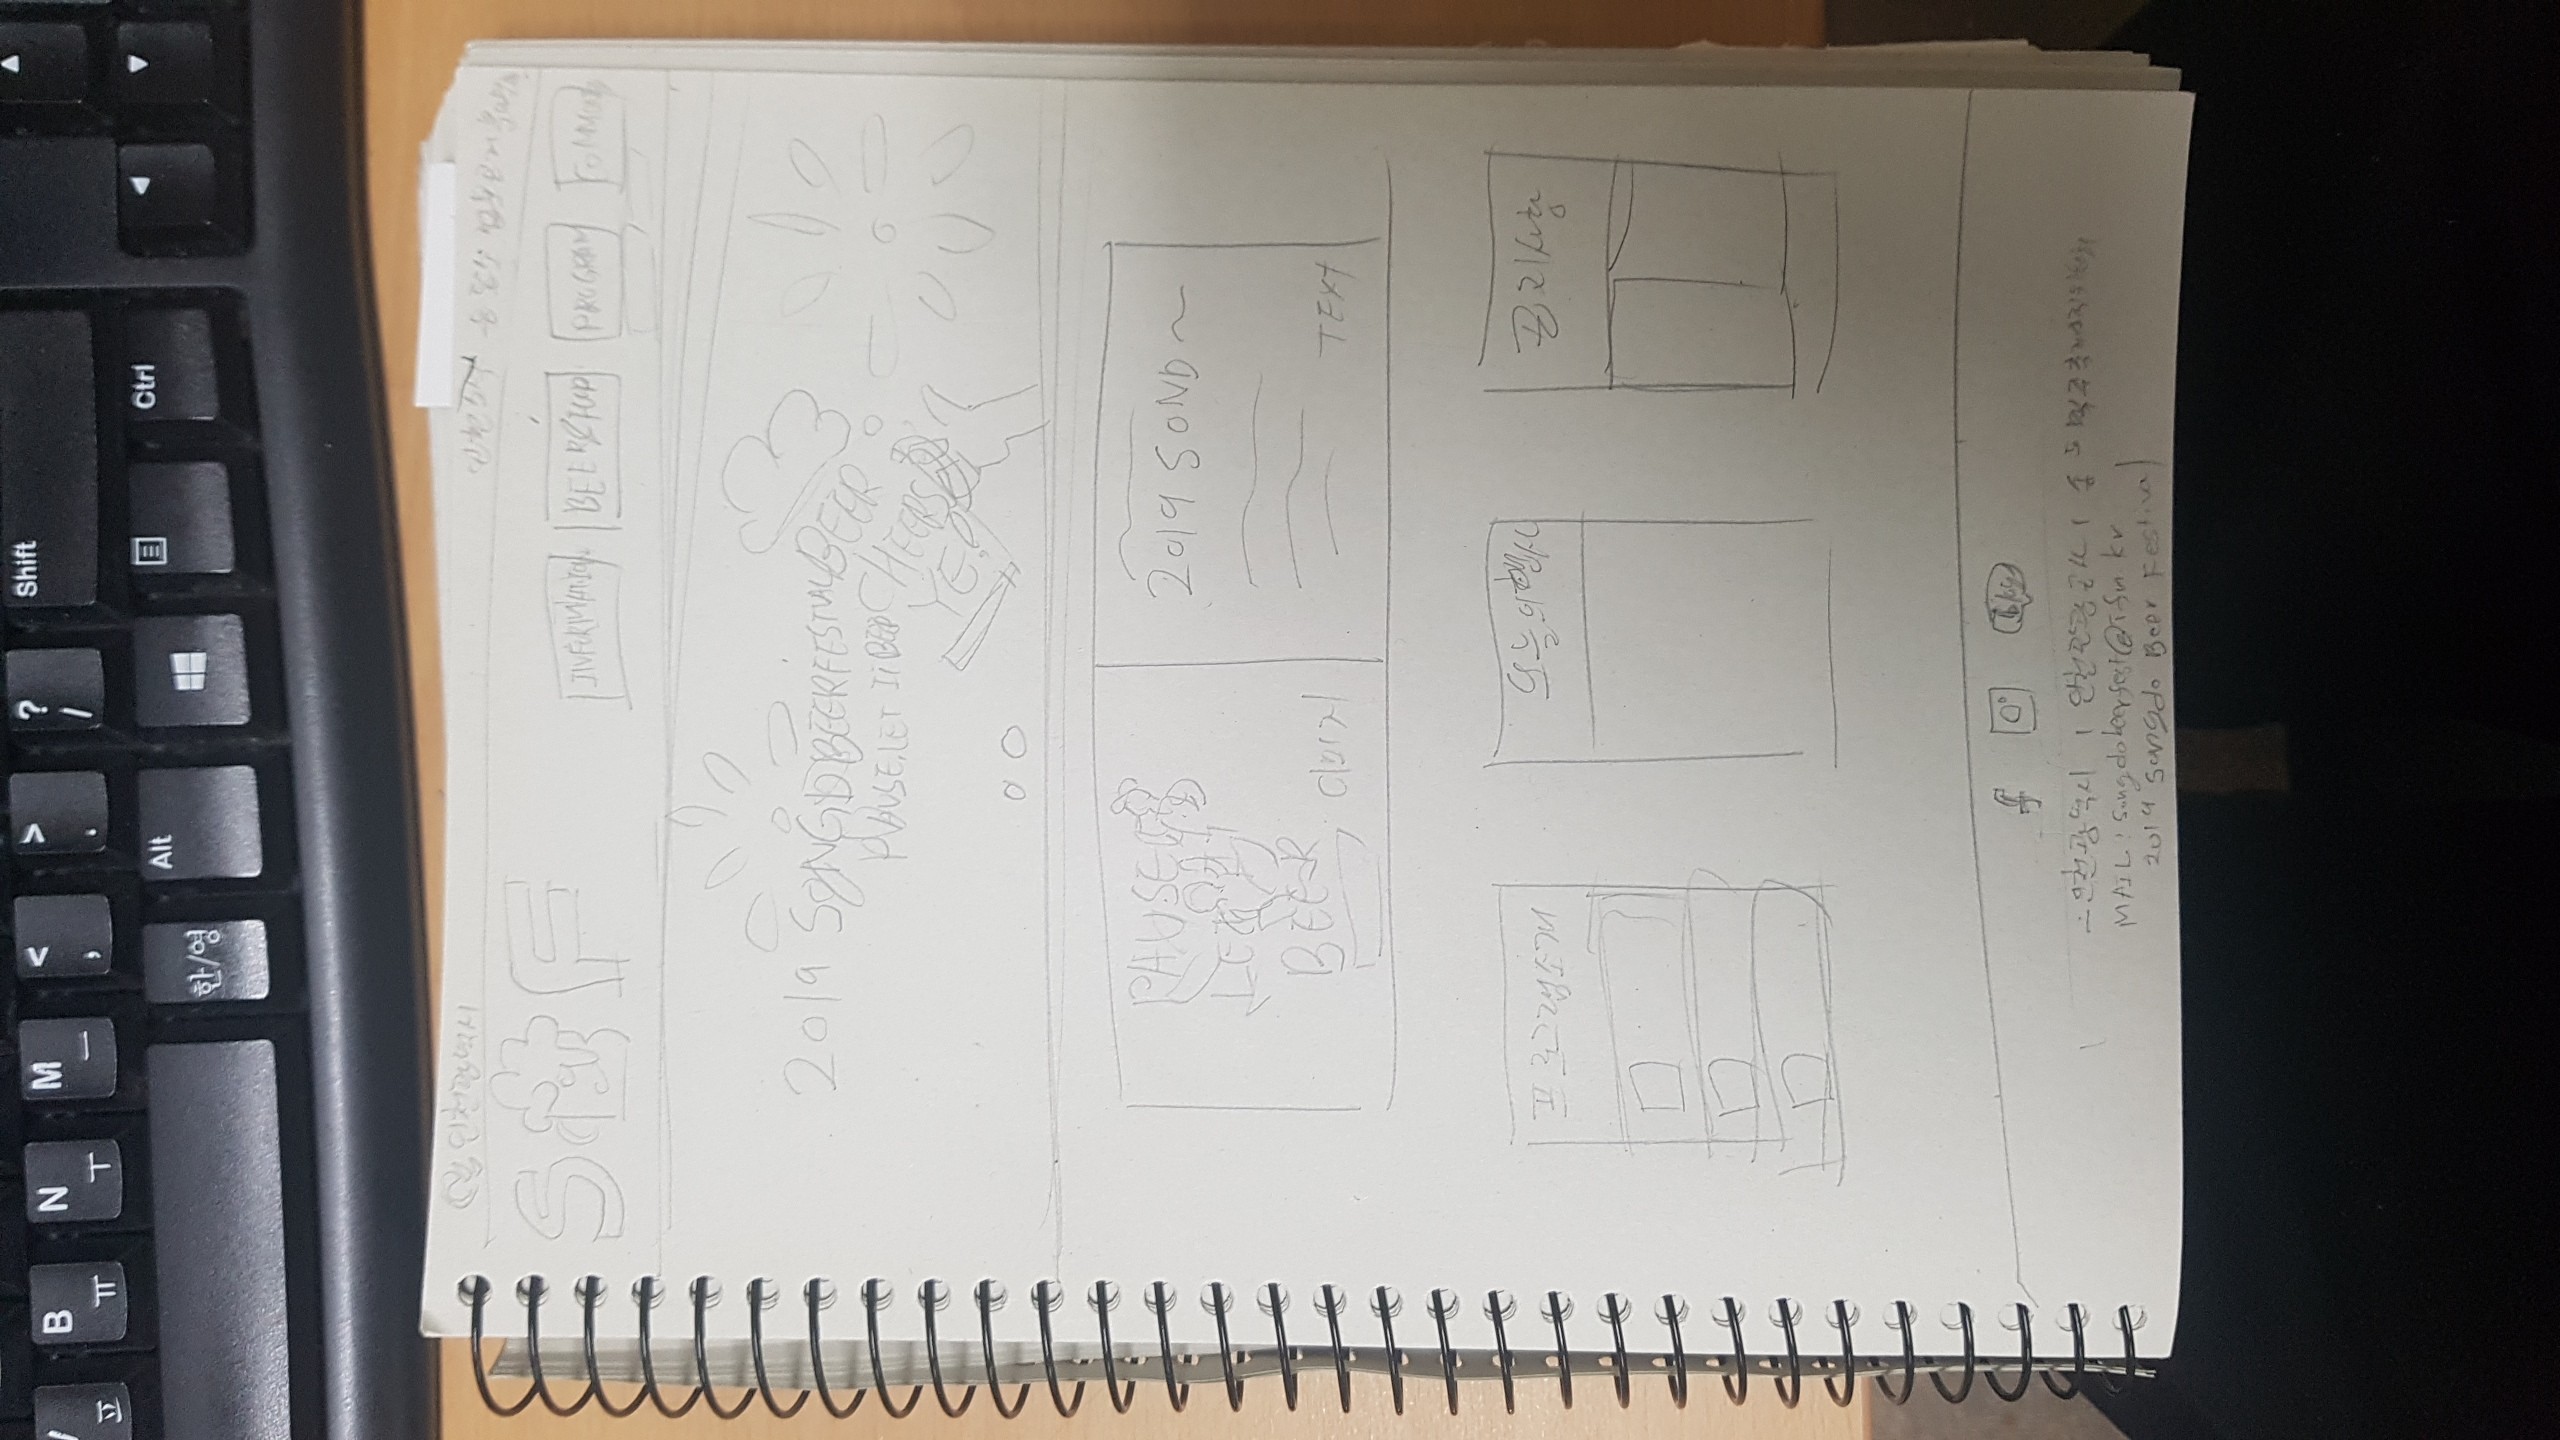 V ㅍ B ㅠ N ㅜ M ㅡ < , > . ? / Shift
한/영 Alt Ctrl
인천광역시
S F
INFORMATION BEER&FOOD PROGRAM
2019 SONGDO BEER FESTIVAL BEER
PAUSE, LET IT BEER CHEERS
YE
PAUSE
LET
BEER
이미지
2019 SOND~
TEXT
프로그램소개 오늘의행사 공지사항
f blog
인천광역시 | 인천관광공사 | 송도맥주축제조직위원회
MAIL: songdobeerfest@ifn.kr
2019 Songdo Beer Festival